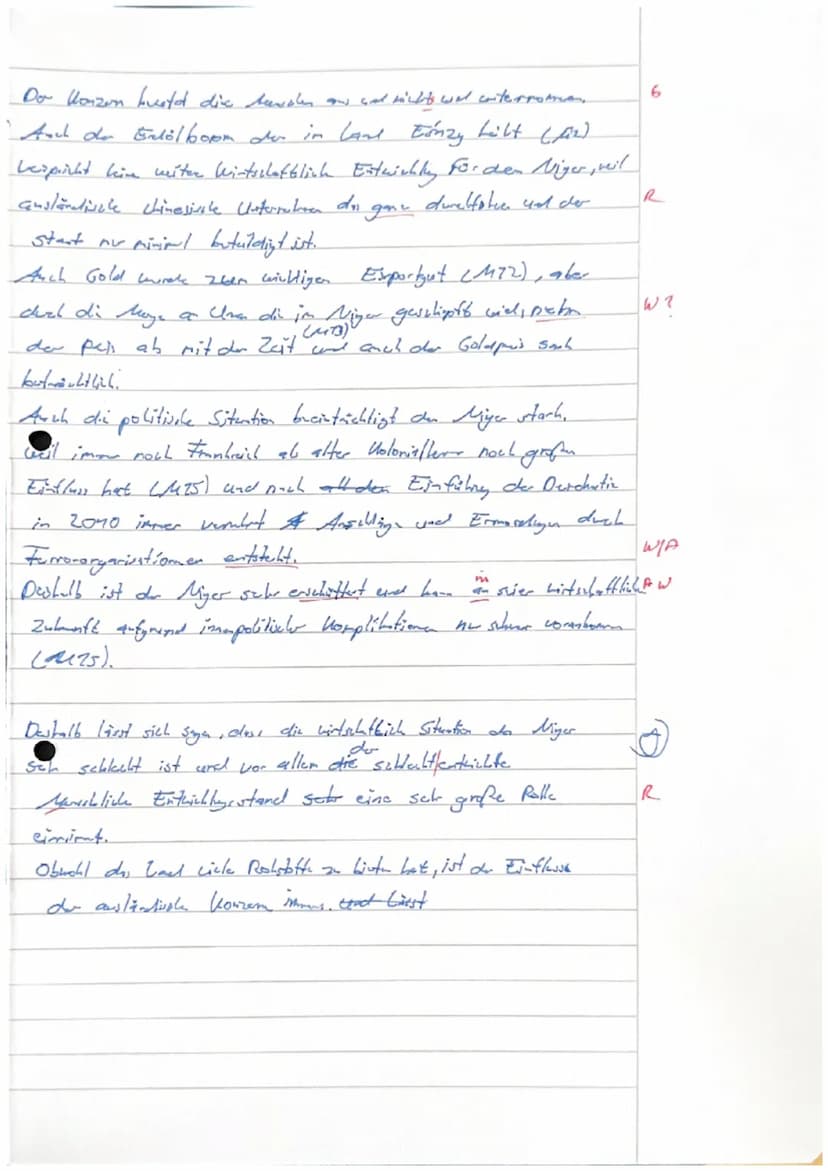 Der Konzern beutet die Menschen aus und nichts wird unternommen. 6
Auch der Erdölboom der im Land Einzug hält
verspricht keine weitere wirtschaftliche Entwicklung für den Niger, weil
ausländische chinesische Unternehmen das ganze durchführen und der R
Staat nur minimal beteiligt ist.
Auch Gold wurde zum wichtigen Exportgut (M12), aber
durch die Menge an Uran die im Niger geschöpft wird, nahm W?
der Preis ab mit der Zeit (M13) und auch der Goldpreis sank
beträchtlich.
Auch die politische Situation beeinträchtigt den Niger stark,
weil immer noch Frankreich als alter Kolonialherr noch großen
Einfluss hat (M15) und nach Einführung der
in 2010 immer vermehrt Anschläge und Ermordungen durch
Terrororganisationen entsteht. W/A
Deshalb ist der Niger sehr erschüttert und kann in seiner wirtschaftlichen A W
Zukunft aufgrund innenpolitischer Komplikationen nur schwer vorankommen
(M15).
Deshalb lässt sich sagen, dass die wirtschaftlich Situation des Niger
sehr schlecht ist und vor allem der schlecht entwickelte
Menschliche Entwicklungsstand eine sehr große Rolle R
einnimmt.
Obwohl das Land viele Rohstoffe zu bieten hat, ist der Einfluss
der ausländische Konzern immens. und lässt